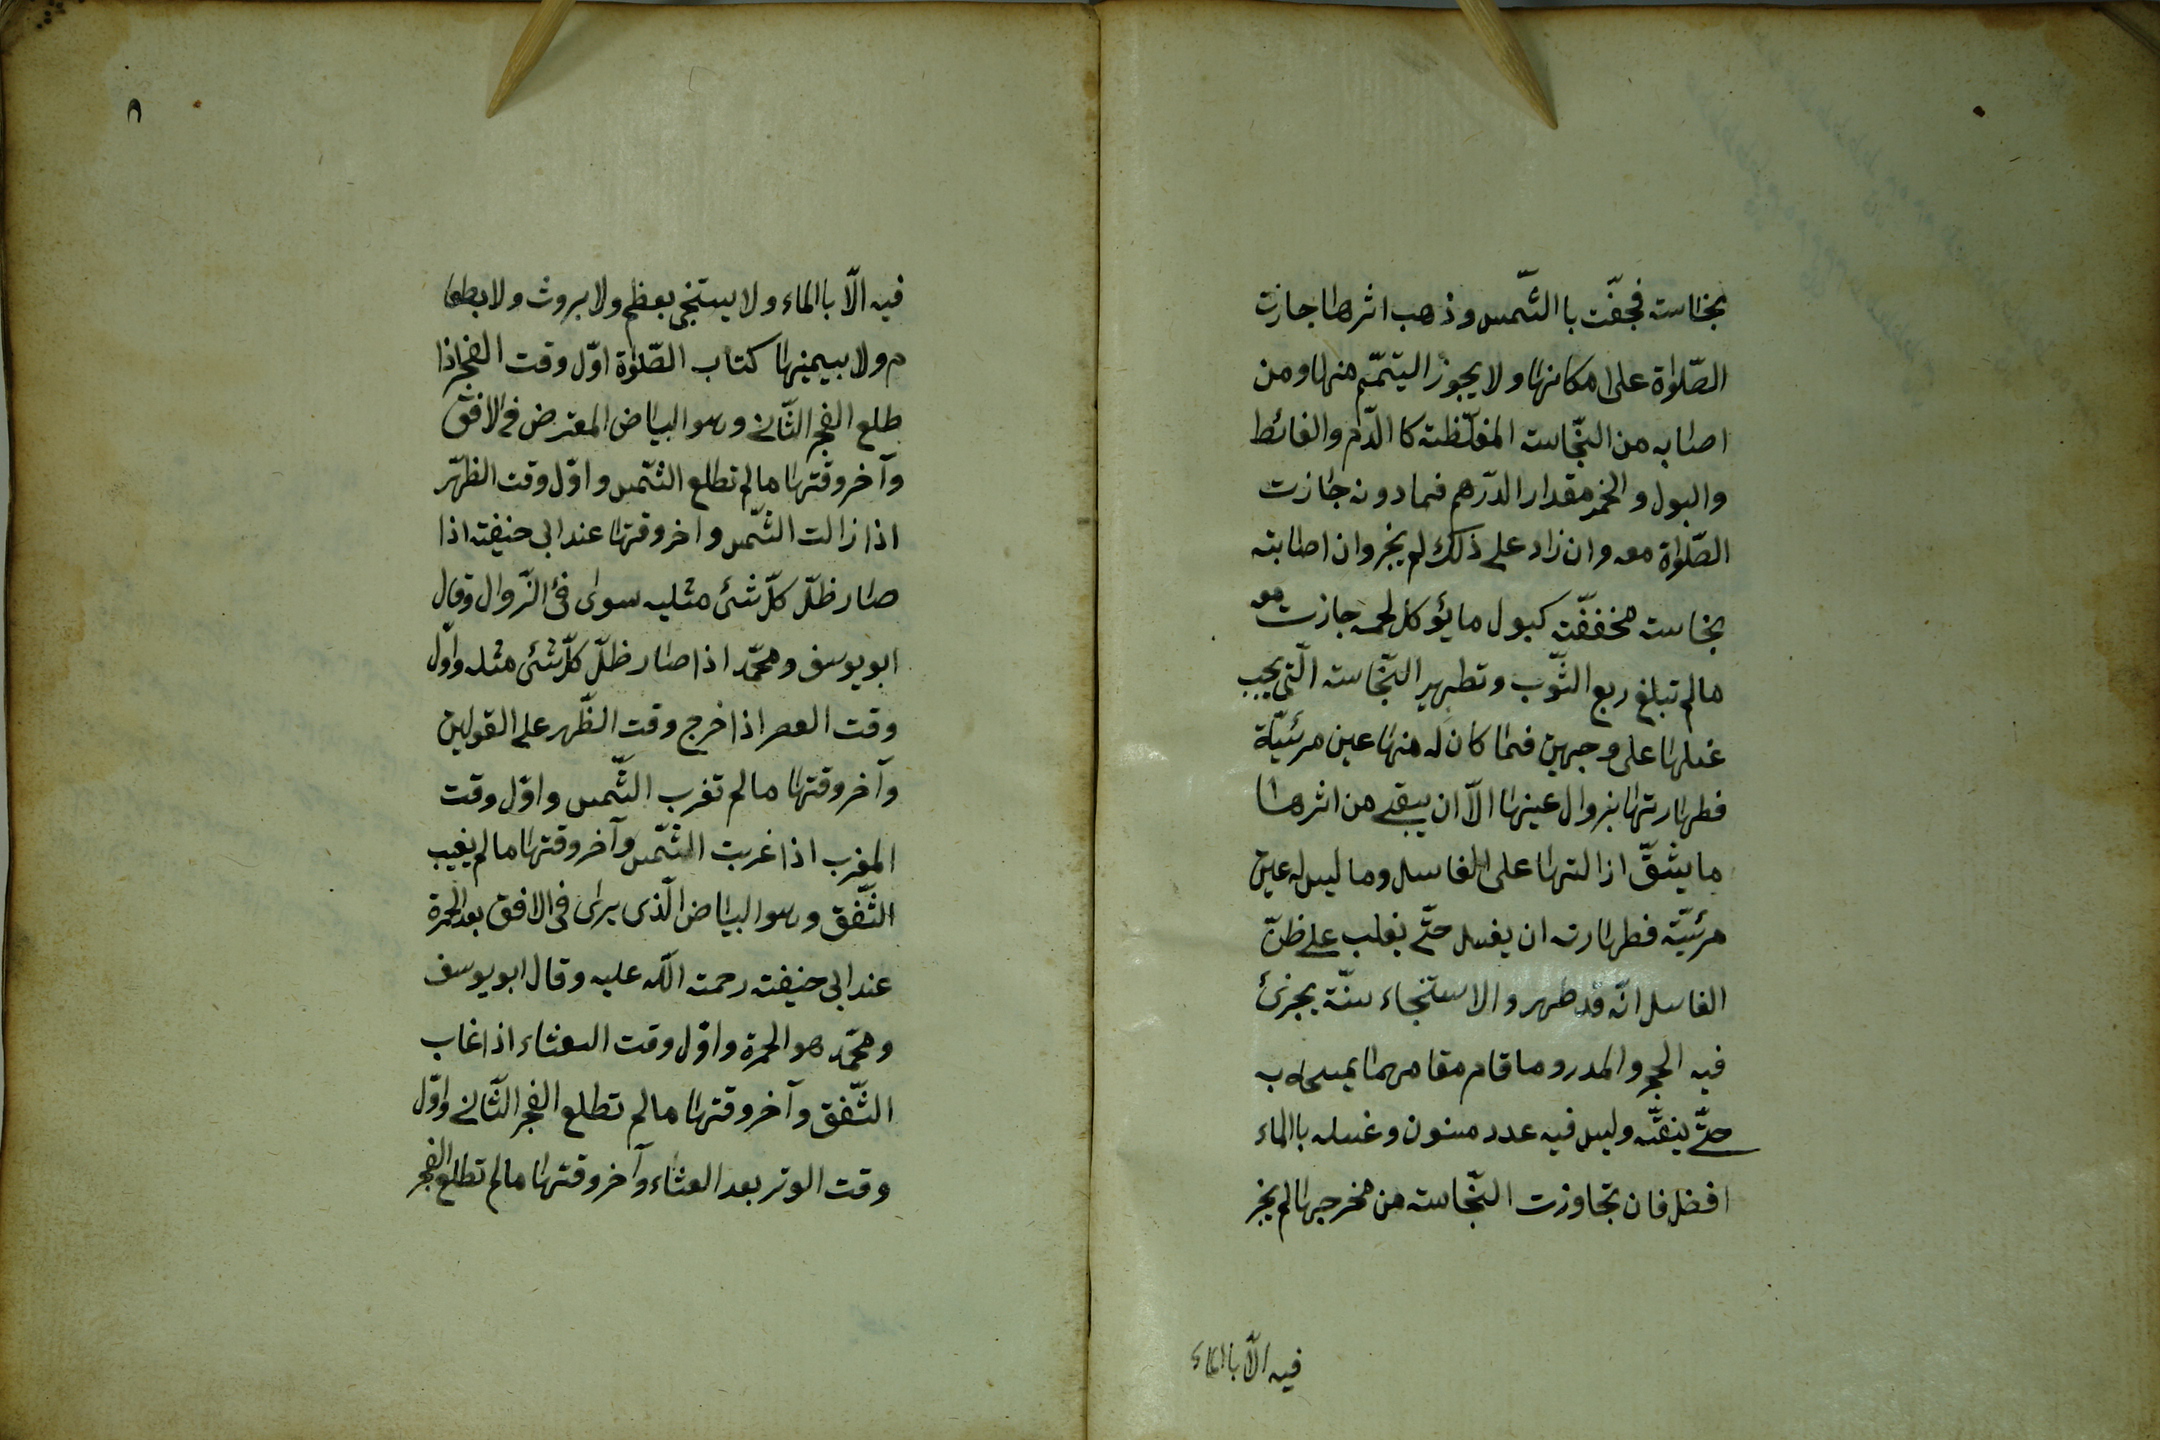 نجاست فجفّت باالشّمس وذهب اثرها جازت
الصّلواة على مكانها ولا يجوز اليتمّم منها ومن
اصابه من النّجاست المغلّظته كا الدّم والغائط
والبول والخمر مقدار الدّرهم فما دونه جازت
الصّلواة معه وان زاد على ذلك لم يجز وان اصابته
نجاست مخففّته كبول ما يؤكل لحمه جازت معه
مالم تبلغ ربع الثّوب وتطهير النّجاسته الّتى يجب
غسلها على وجهين فما كان له منها عين مرئيّة
فطهارتها بزوال عينها الّا ان يبقى من اثرها
ما يشقّ ازالتها على الغاسل وما ليس له عين
مرئيّته فطهارته ان يغسل حتّى يغلب على ظنّ
الغاسل انّه قد طهر والاستنجاء سنّة يجزئ
فيه الحجر والمدر وما قام مقامهما يمسحه
حتّى ينقّه وليس فيه عدد مسنون وغسله باالماء
افضل فان تجاوزت النّجاسته من مخرجها لم يجز
فيه الّا باالماء
٨
فيه الّا باالماء ولا يستنجى بعظم ولا بروث ولا بطعا
م ولا بيمينها كتاب الصّلواة اوّل وقت الفجر اذا
طلع الفجر الثّانى وهو البياض المعترض فى الافق
وآخر وقتها مالم تطلع الشّمس واوّل وقت الظّهر
اذا زالت الشّمس واخر وقتها عند ابى حنيفته اذا
صار ظلّ كلّ شئ مثليه سواى فئ الزّوال وقال
ابو يوسف ومحمّد اذا صار ظلّ كلّ شئ مثله واوّل
وقت العصر اذا خرج وقت الظّهر على القولين
وآخر وقتها مالم تغرب الشّمس واوّل وقت
المغرب اذا غربت الشّمس وآخر وقتها مالم يغيب
الشّفق وهو البياض الّذى يراى فى الافق بعد الحمرة
عند ابى حنيفته رحمت اللّه عليه وقال ابو يوسف
ومحمّد هو الحمرة واوّل وقت العشاء اذا غاب
الشّفق وآخر وقتها مالم تطلع الفجر الثّانى واوّل
وقت الوتر بعد العشاء وآخر وقتها مالم تطلع الفجر